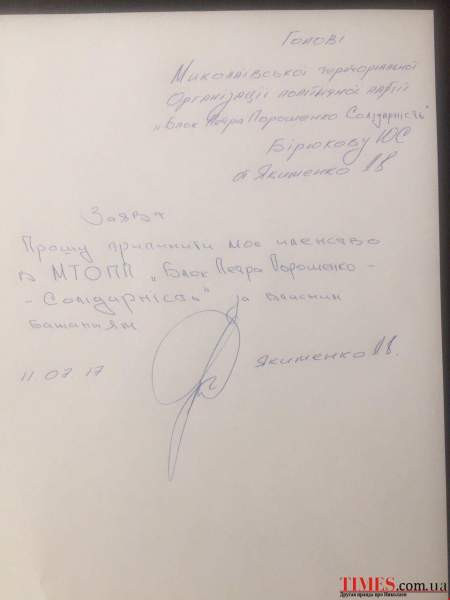 Голові
Миколаївської територіальної
Організації політичної партії
„Блок Петра Порошенко Солідарність"
Бірюкову ЮС
Якименко
Заява
Прошу припинити моє членство
в МТОПП „Блок Петра Порошенко -
- Солідарність" за власним
бажанням
11.07.17 Якименко
TIMES.com.ua
Другая правда про Николаев